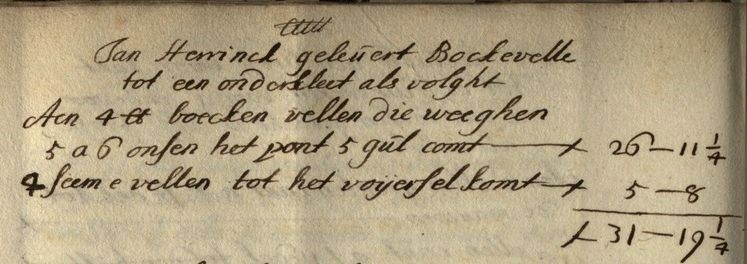 Jan Herrinck geleuert Bockevelle
tot een onderkleet als volght
Aen 4 ℔ boecken vellen die weeghen
5 a 6 onsen het pont 5 gul comt 26 — 11 1/4
4 seeme vellen tot het voijersel komt 5 — 8
31 — 19 1/4